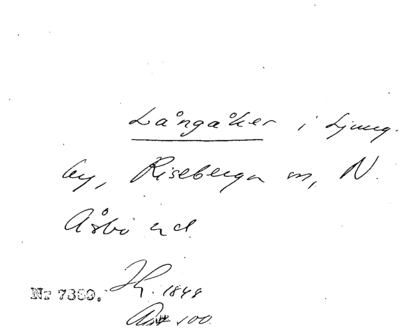 Långåker i Ljung-
by, Riseberga sn, N.
Åsbo hd.
Nr 7380. 1848
100.